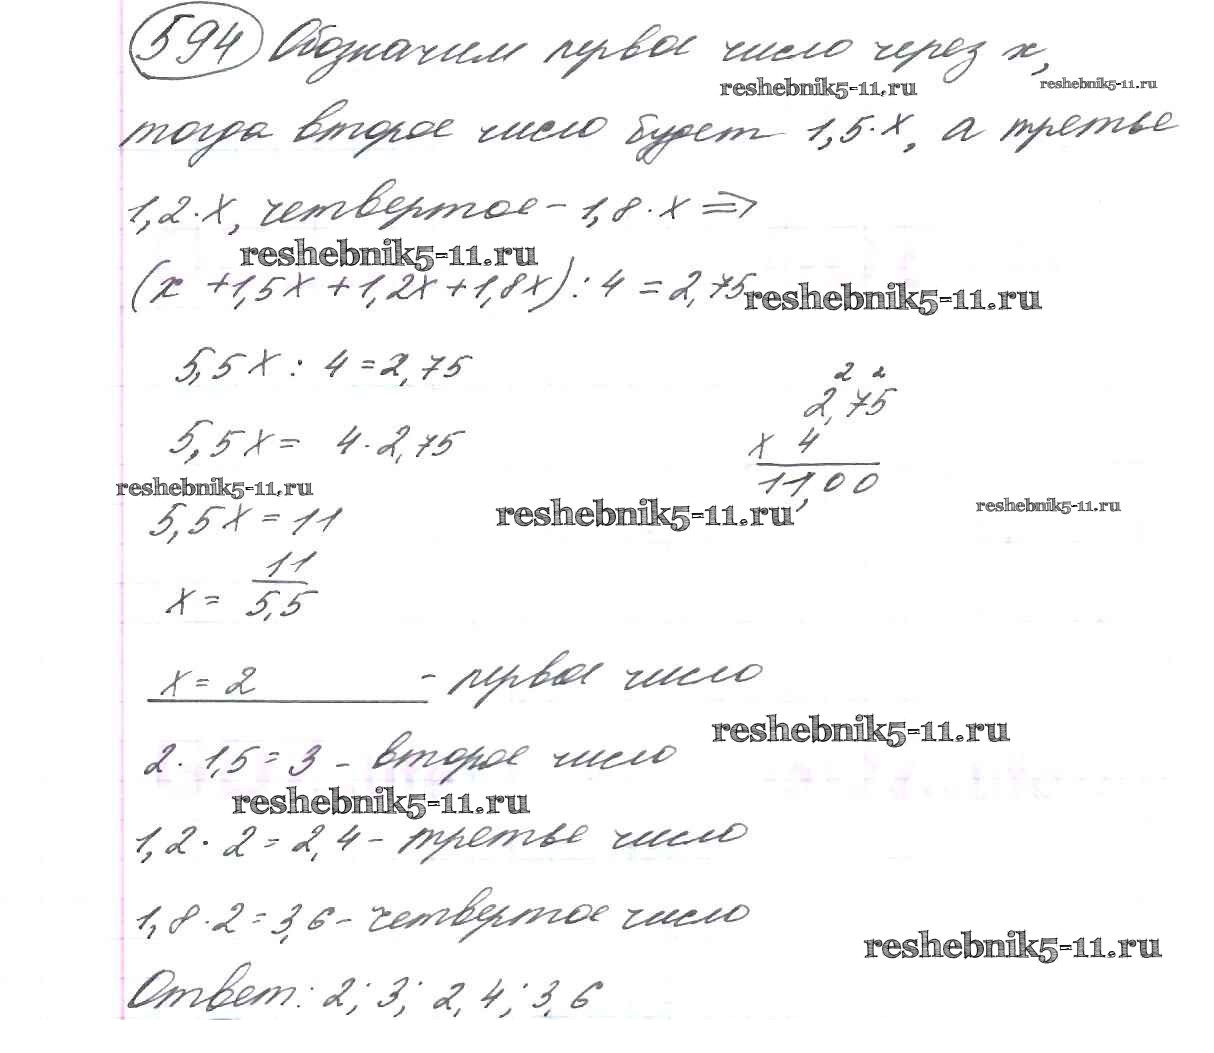 594 Обозначим первое число через x,
reshebnik5-11.ru
reshebnik5-11.ru
тогда второе число будет 1,5·x, а третье
1,2·x, четвертое - 1,8·x ⇒
reshebnik5-11.ru
(x + 1,5x + 1,2x + 1,8x) : 4 = 2,75
reshebnik5-11.ru
5,5x : 4 = 2,75
5,5x = 4·2,75
2 2
2,75
x 4
11,00
reshebnik5-11.ru
reshebnik5-11.ru
reshebnik5-11.ru
5,5x = 11
x = 11/5,5
x = 2 - первое число
reshebnik5-11.ru
2·1,5 = 3 - второе число
reshebnik5-11.ru
1,2·2 = 2,4 - третье число
1,8·2 = 3,6 - четвертое число
reshebnik5-11.ru
Ответ: 2; 3; 2,4; 3,6